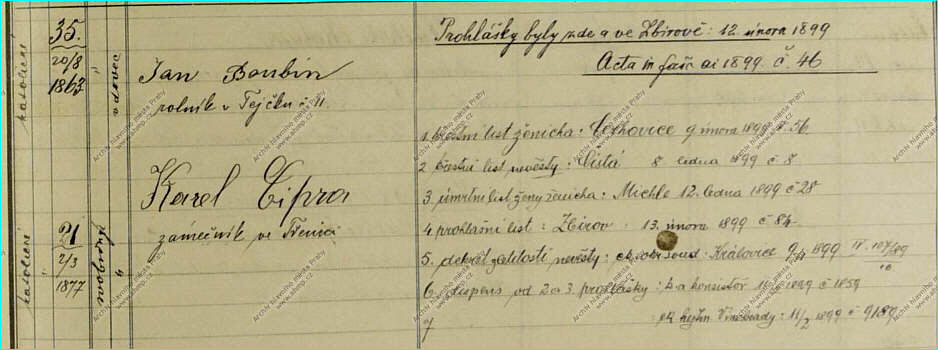 35.
20/8
1863
katolické
"
vdovec
Jan Boubín
rolník v Tejčku č 11
Karel Cipra
zámečník ve Třenici
21
2/3
1877
katolické
"
Prohlášky byly zde a ve Zbirově: 12. února 1899
Acta in fasc ai 1899 č. 46
1. křestní list ženicha: 9 února 1899 č. 56
2 křestní list nevěsty: Čistá 8 ledna 1899 č 8
3. úmrtní list ženy ženicha: Michle 12. ledna 1899 č 28
4 prohlášní list: Zbirov 13. února 1899 č 84
5. dekret zletilosti nevěsty: okr soud Kralovice 1899
6. dispens od 2 a 3. prohlášky: k a konsistoř 1899 č 1859
7
ck hejtm Vinohrady: 11/2 1899 č 9189
Archiv hlavního města Prahy
www.ahmp.cz